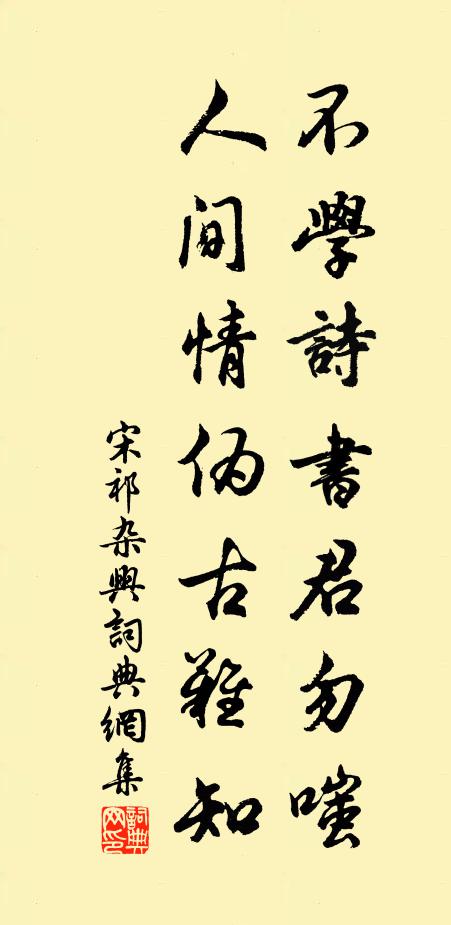 不學詩書君勿嗤
人间情伪古難知
宋祁杂興詞典網集
詞典网印